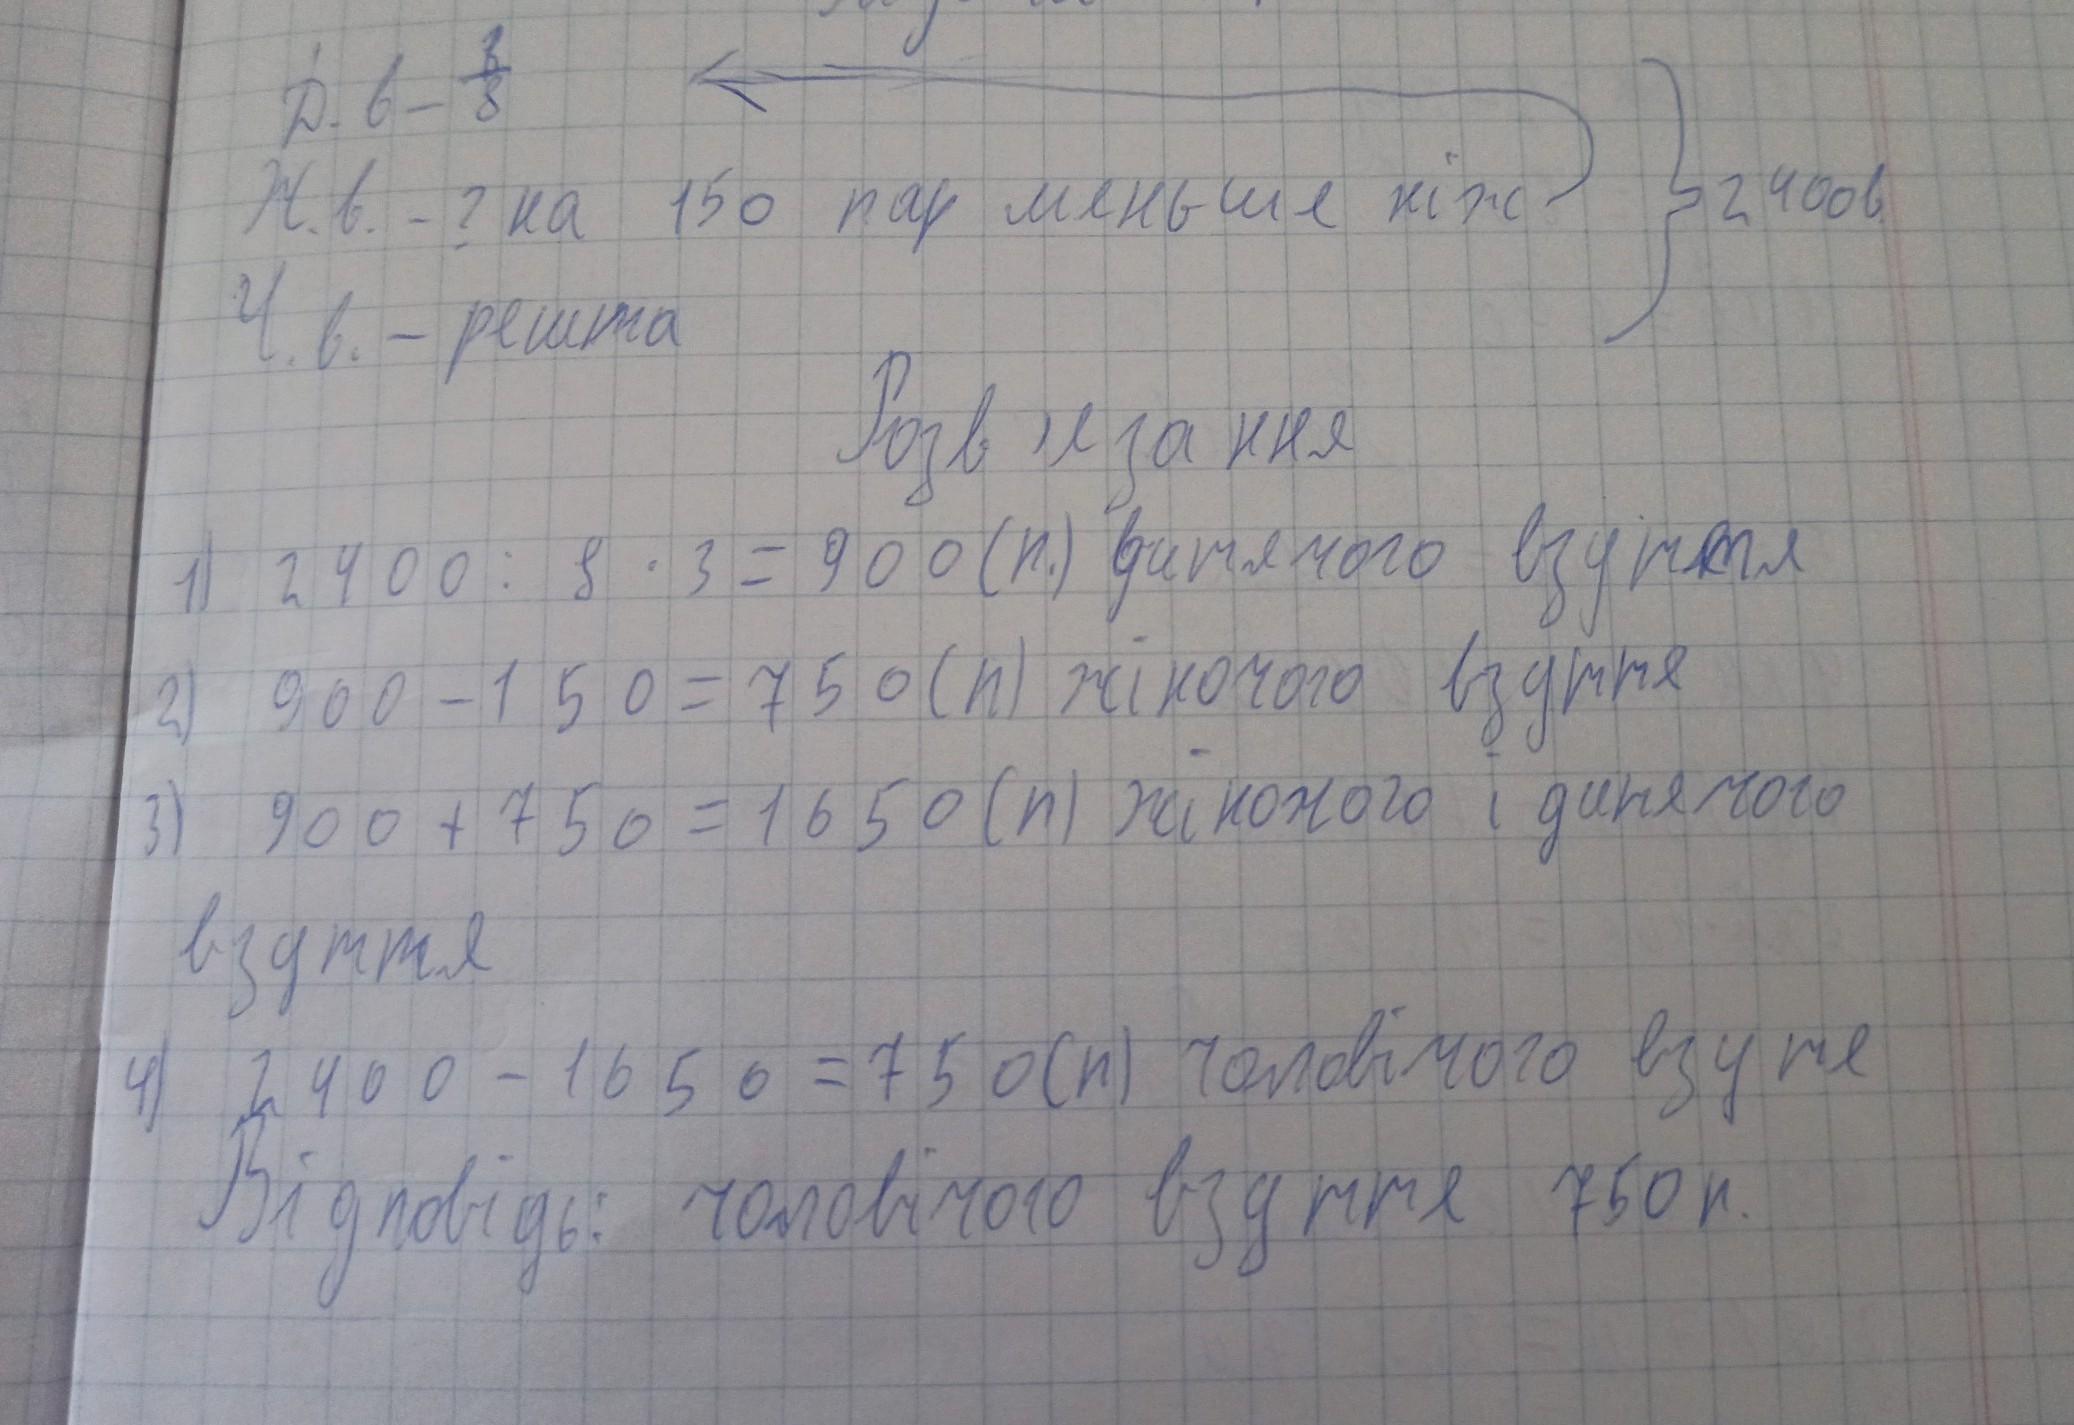 Д. в - 3/8
Ж. в. - ? на 150 пар меньше ніж
2400в.
Ч. в. - решта
Розв'язання
1) 2400 : 8 · 3 = 900 (п.) дитячого взуття
2) 900 - 150 = 750 (п) жіночого взуття
3) 900 + 750 = 1650 (п) жіножого і дитячого
взуття
4) 2400 - 1650 = 750 (п) чоловічого взутя
Відповідь: чоловічого взуття 750 п.